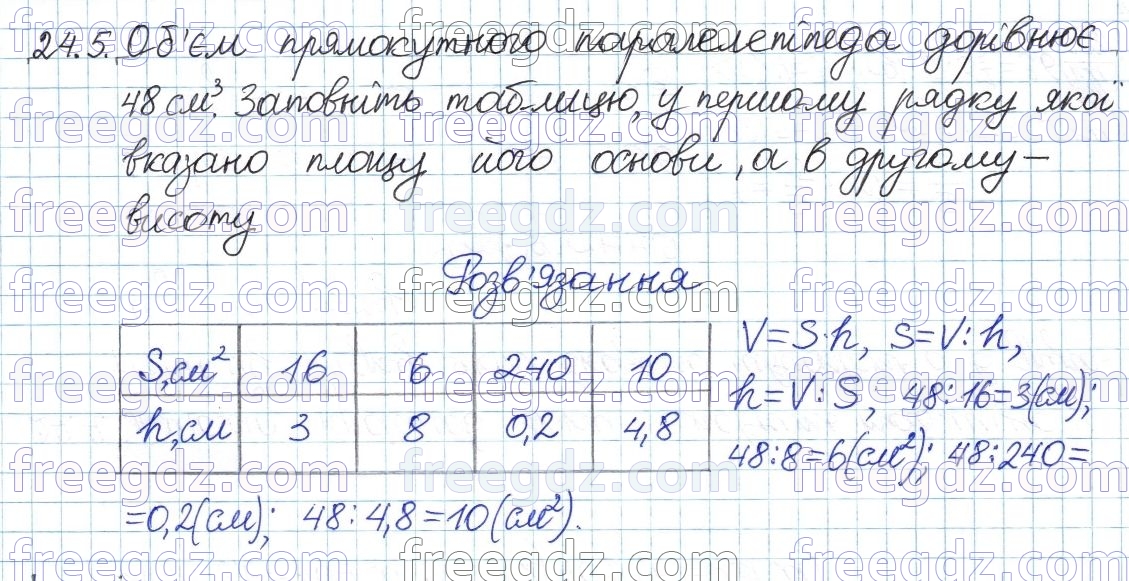 24.5. Об'єм прямокутного паралелепіпеда дорівнює
48 см³. Заповніть таблицю, у першому рядку якої
вказано площу його основи, а в другому –
висоту
Розв'язання
S, см² 16 6 240 10
h, см 3 8 0,2 4,8
V = S·h, S = V : h,
h = V : S, 48 : 16 = 3 (см);
48 : 8 = 6 (см²); 48 : 240 =
= 0,2 (см); 48 : 4,8 = 10 (см²).
freegdz.com